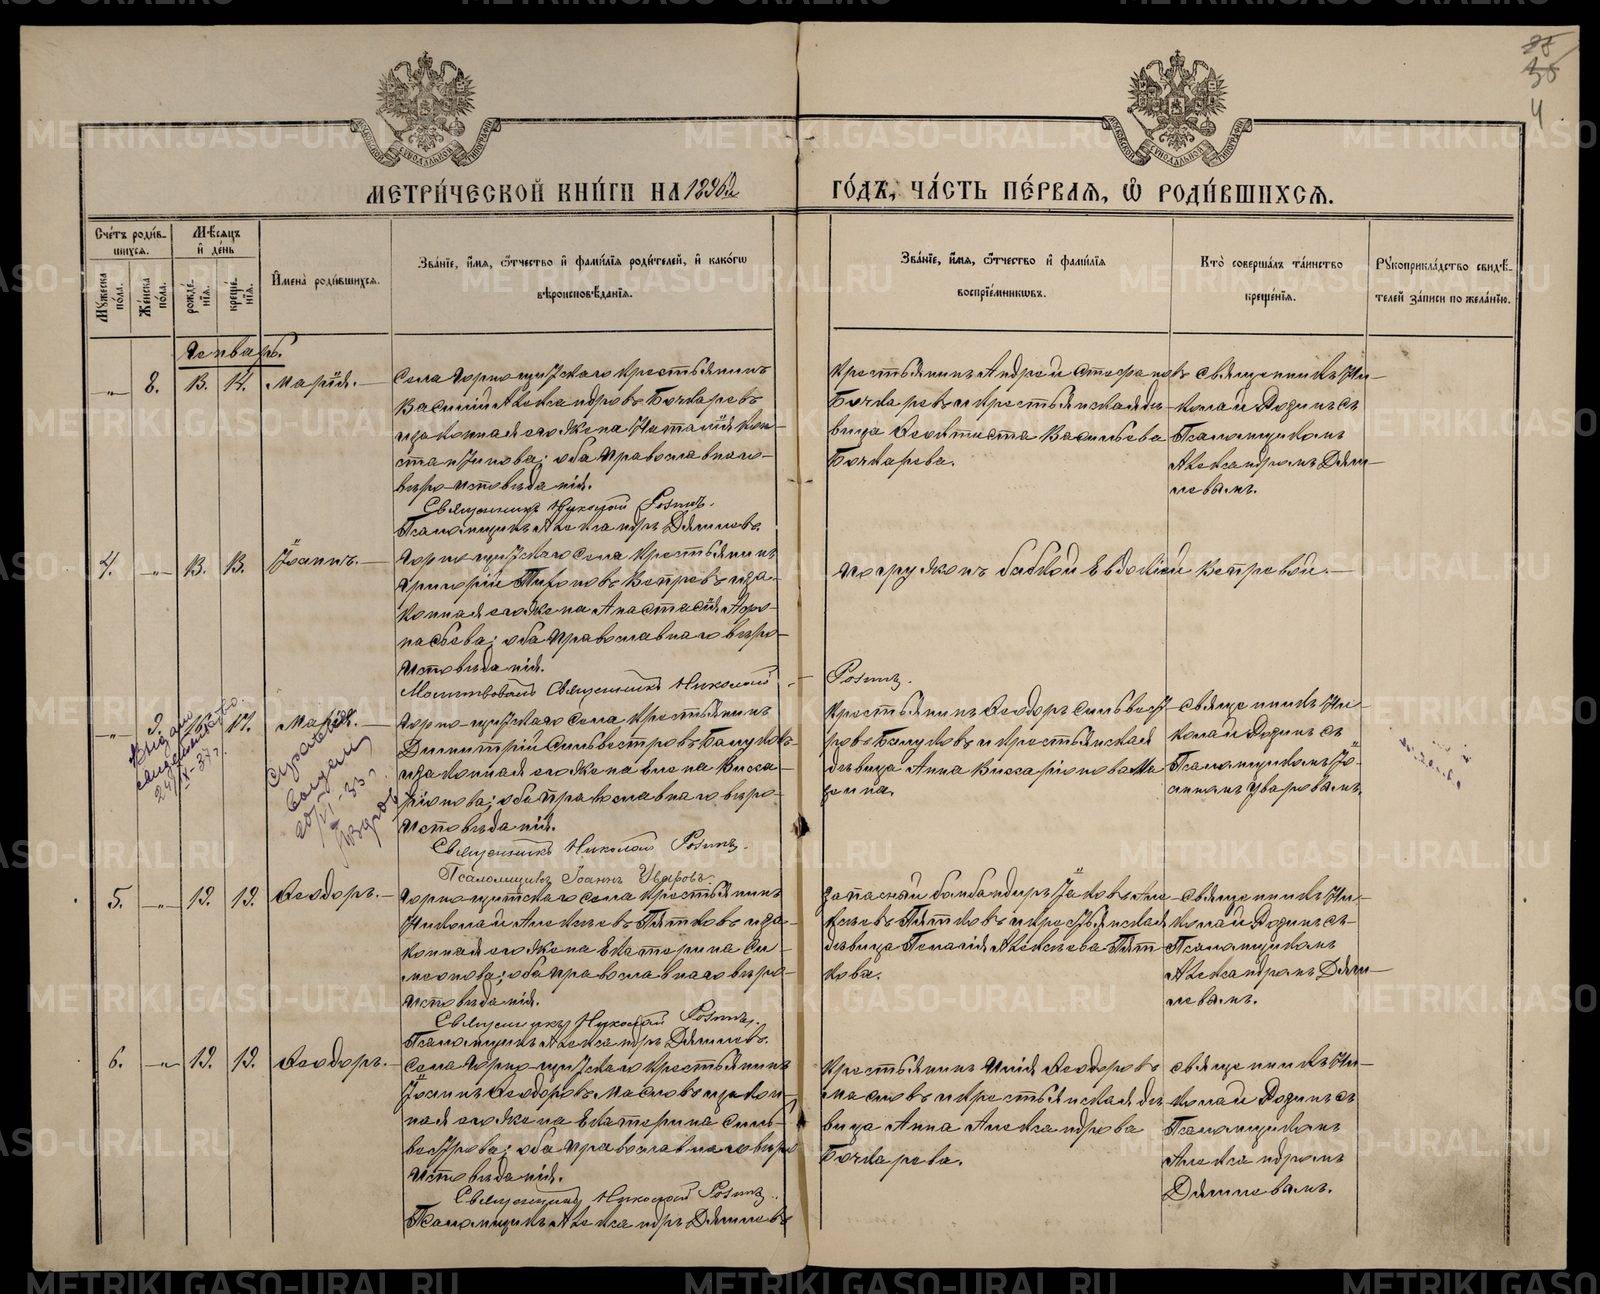 МЕТРИ́ЧЕСКОЙ КНИ́ГИ НА 1896й
ГО́ДЪ, ЧА́СТЬ ПЕ́РВАѦ, Ѡ҆ РОДИ́ВШИХСѦ.
Сче́тъ роди́в-
шихсѧ.
Мѣ́сѧцъ
и҆ де́нь
Мꙋ́жеска
по́ла.
Же́нска
по́ла.
рожде́-
нїѧ.
креще́-
нїѧ.
И҆мена̀ роди́вшихсѧ.
Зва́нїе, и҆́мѧ, ѻ҆́тчество и҆ фамѝлїѧ роди́телей, и҆ како́гѡ
вѣроисповѣ́данїѧ.
Зва́нїе, и҆́мѧ, ѻ҆́тчество и҆ фамѝлїѧ
воспрїе́мникѡвъ.
Кто̀ соверша́лъ та́инство
креще́нїѧ.
Рꙋкоприкла́дство свидѣ́-
телей за́писи по жела́нїю.
Январь.
„ 2. 13. 14. Марія.
Села Горно-щитскаго крестьянинъ
Василій Александровъ Бочкаревъ
и законная его жена Наталія Кон-
стантинова; оба православнаго
вѣроисповѣданія.
Священникъ Николай Розинъ.
Псаломщикъ Александръ
Крестьянинъ Андрей Стефановъ
Бочкаревъ и крестьянская дѣ-
вица Феоктиста Васильева
Бочкарева.
Священникъ Ни-
колай Розинъ съ
Псаломщикомъ
Александромъ
4. „ 13. 13. Іоаннъ.
Горно-щитскаго села крестьянинъ
Григорій Тихоновъ Вепревъ и за-
конная его жена Анастасія Афо-
насьева; оба православнаго вѣро-
исповѣданія.
Молитвовалъ Священникъ Николай
Розинъ.
Погружонъ бабкой Евдокіей Вепревой.
„ 3. 17. Марія.
Горно-щитскаго села крестьянинъ
Димитрій Сильвестровъ
и законная его жена Елена Висса-
ріонова; оба православнаго вѣро-
исповѣданія.
Священникъ Николай Розинъ.
Псаломщикъ Іоаннъ Уваровъ.
Крестьянинъ Феодоръ Сильвест-
ровъ и крестьянская
дѣвица Анна Виссаріонова
Священникъ Ни-
колай Розинъ съ
Псаломщикомъ Іо-
анномъ Уваровымъ.
5. „ 19. 19. Феодоръ.
Горно-щитскаго села крестьянинъ
Николай Алексѣевъ Пятковъ и за-
конная его жена Екатерина Си-
меонова; оба православнаго вѣро-
исповѣданія.
Священникъ Николай Розинъ.
Псаломщикъ Александръ
Запасный бомбандиръ Іаковъ Але-
ксѣевъ Пятковъ и крестьянская
дѣвица Пелагія Алексѣева Пят-
кова.
Священникъ Ни-
колай Розинъ съ
Псаломщикомъ
Александромъ
6. „ 19. 19. Феодоръ.
Села Горно-щитскаго крестьянинъ
Іоаннъ Феодоровъ Масловъ и закон-
ная его жена Екатерина Силь-
вестрова; оба православнаго вѣро-
исповѣданія.
Священникъ Николай Розинъ.
Псаломщикъ Александръ
Крестьянинъ Илія Феодоровъ
Масловъ и крестьянская дѣ-
вица Анна Александрова
Бочкарева.
Священникъ Ни-
колай Розинъ съ
Псаломщикомъ
Александромъ
METRIKI.GASO-URAL.RU